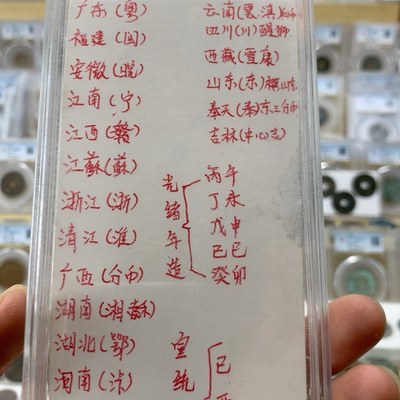 广东(粤)
福建(闽)
安徽(皖)
江南(宁)
江西(赣)
江蘇(蘇)
浙江(浙)
清江(淮)
广西(分市)
湖南(湘)
湖北(鄂)
河南(汴)
云南(雲、滇)
四川(川)
西藏(雪康)
山东(东)
奉天(奉)东三
吉林(中心吉)
光绪年造
丙午
丁未
戊申
己巳
癸卯
宣统
己